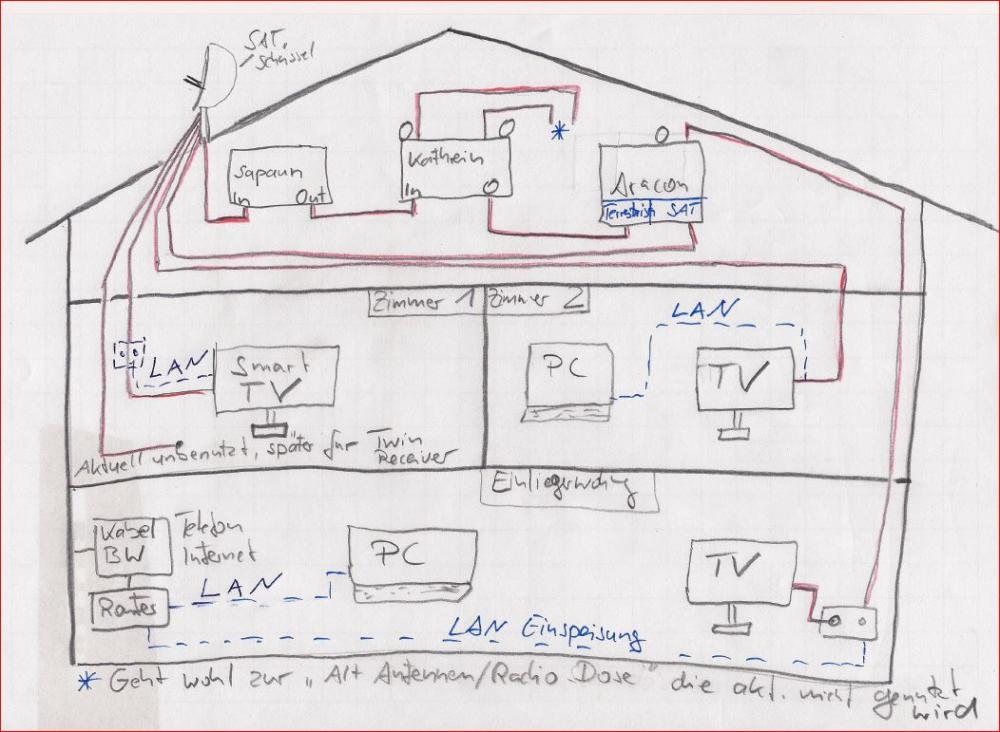 SAT.
Schüssel
Sapaun
In Out
Kathein
In
Aracon
Terrestrish SAT
*
Zimmer 1
Zimmer 2
LAN
LAN
Smart
TV
PC
TV
Aktuell unbenutzt, später für Twin
Receiver
Einliegerwohnung
Kabel
BW
Telefon
Internet
Router
LAN
PC
TV
LAN Einspeisung
* Geht wohl zur „Alt Antennen/Radio Dose" die akt. nicht genutzt
wird